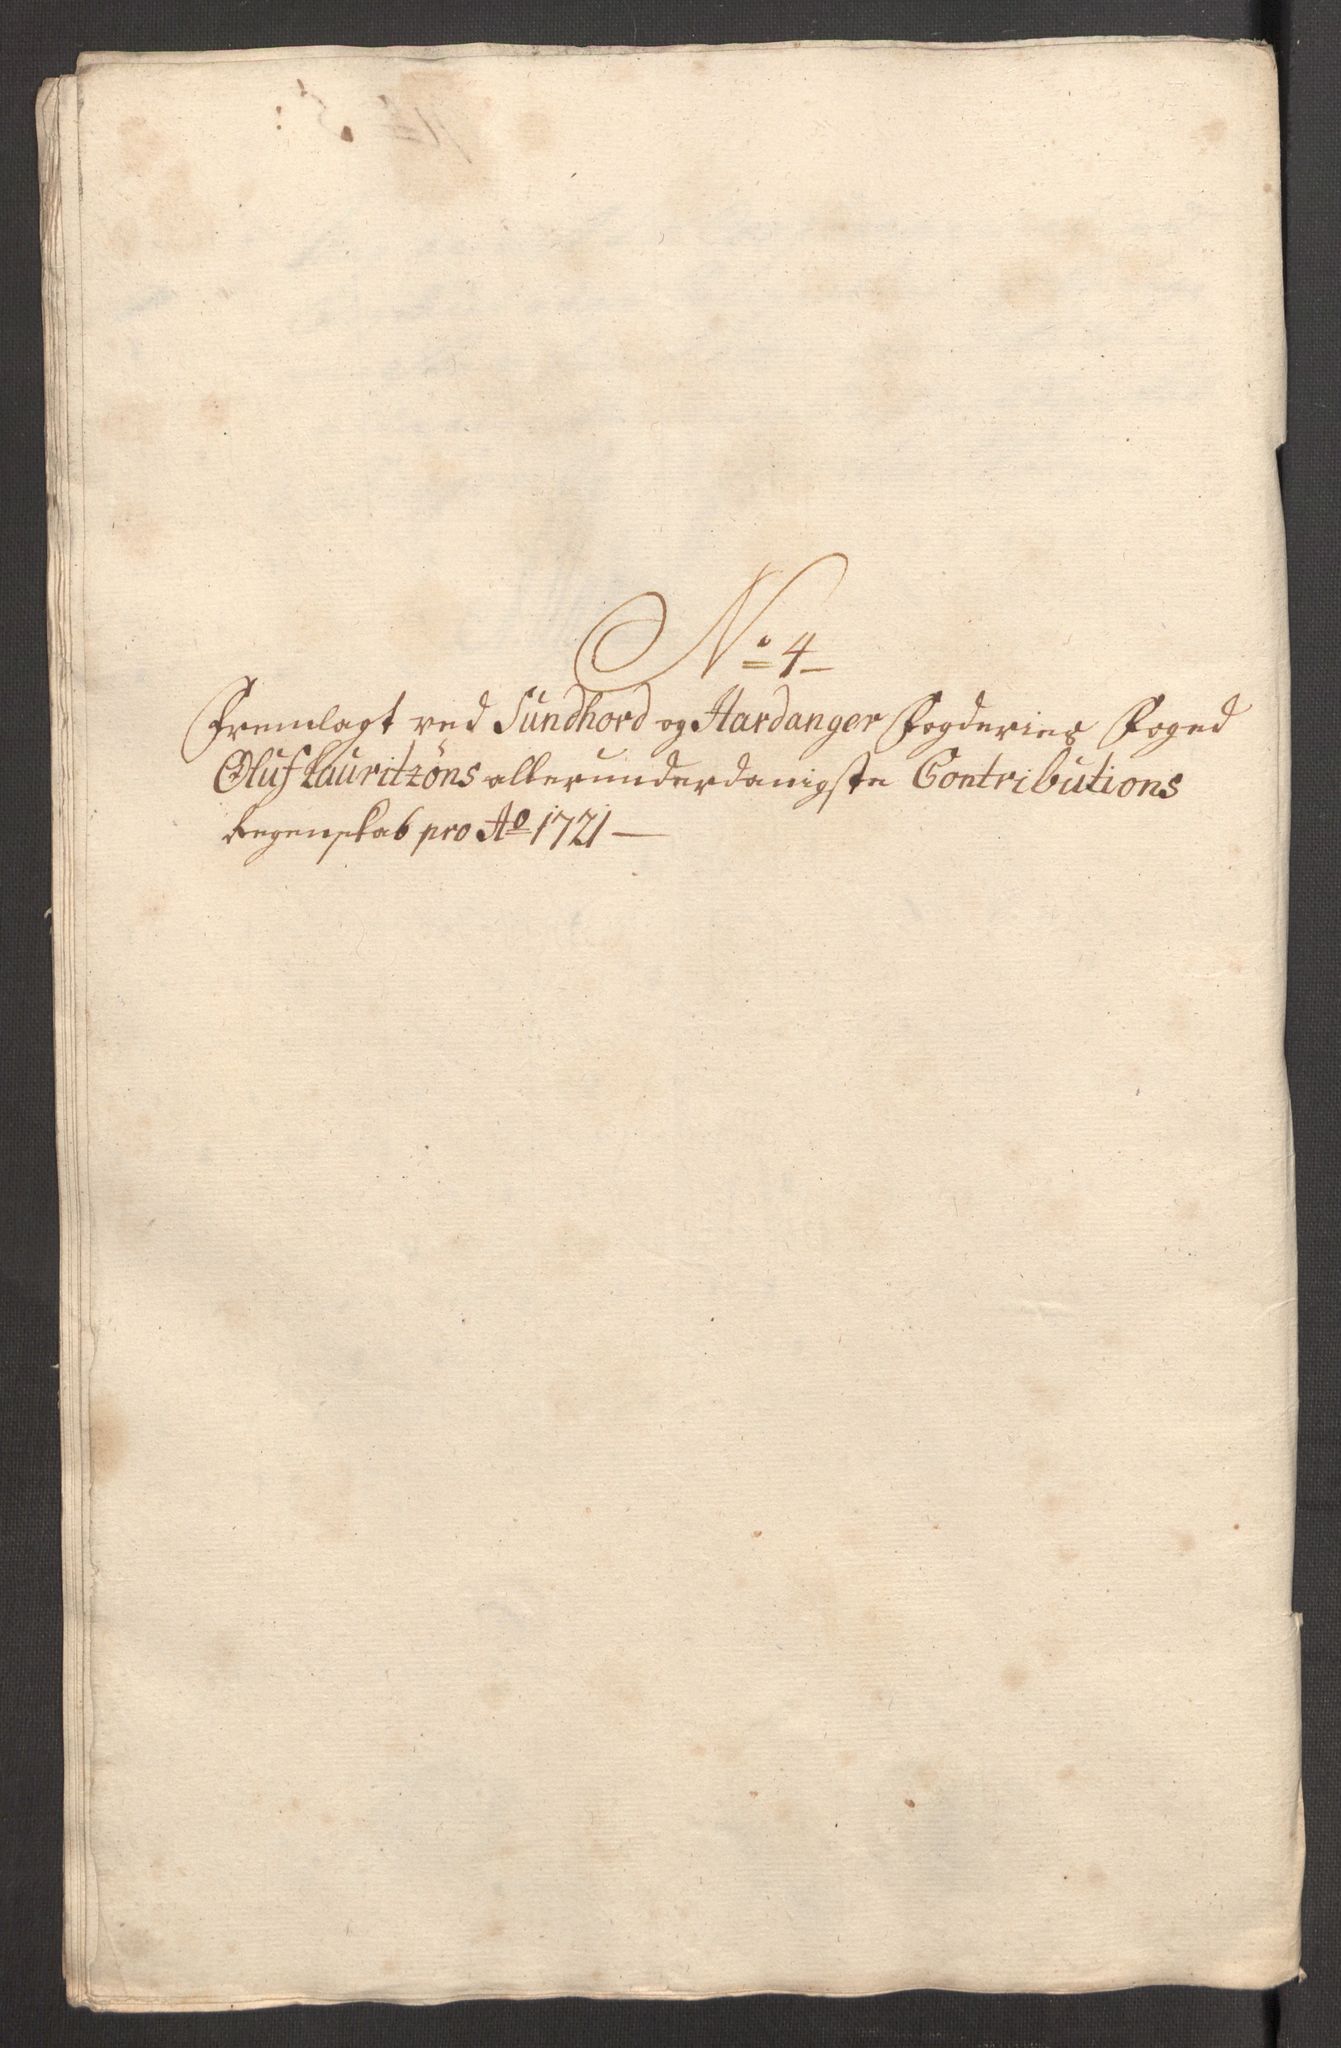 No 4
Fremlagt ved Sundhord og Hardanger Fogderies Foged
Oluf Lauritzöns allerunderdanigste Contributions
Regenskab pro Ao 1721